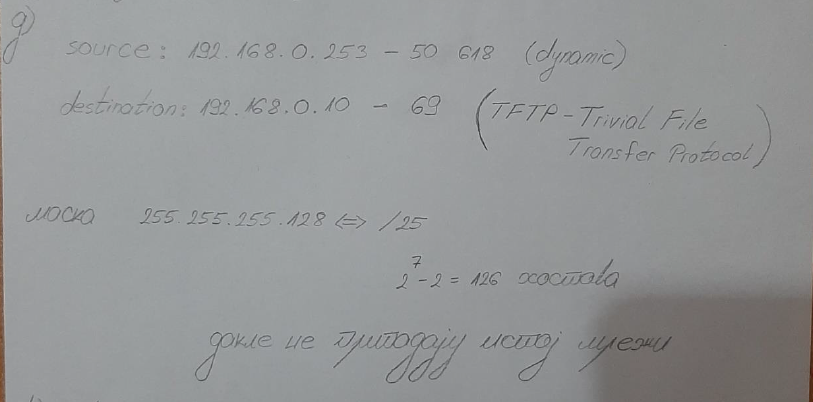 д)
source: 192.168.0.253 - 50 618 (dynamic)
destination: 192.168.0.10 - 69 (TFTP - Trivial File
Transfer Protocol)
маска 255.255.255.128 <=> /25
2^7 - 2 = 126 хостова
дакле не припадају истој мрежи